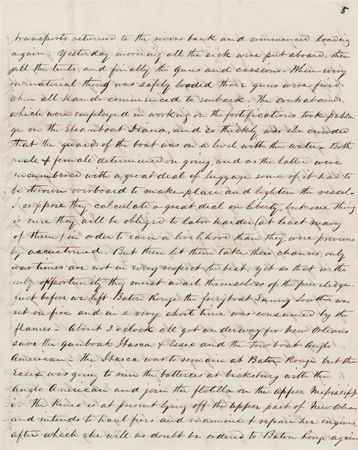 5
transports returned to the rivers bank and commenced loading
again. Yesterday morning all the sick were put aboard, then
all the tents and finally the guns and caissons. When every
material thing was safely loaded three guns were fired
when all hands commenced to embark. The contrabands,
which were employed in working on the fortifications took passa-
ge on the Steamboat Diana, and so thickly was she crowded
that the guard of the boat was on a level with the water. Both
male & female determined on going, and as the latter were
encumbered with a great deal of luggage some of it had to
be thrown overboard to make place, and lighten the vessel.
I suppose they calculate a great deal on liberty, but one thing
is sure they will be obliged to labor harder (at least many
of them) in order to earn a livelihood than they were previous
ly accustomed. But then let them take their chances, only
war times are not in every respect the best, yet as that is the
only opportunity they must avail themselves of the priviledge.
Just before we left Baton Rouge the ferryboat Fanny Souther was
set on fire and in a very short time was consumed by the
flames. About 3 o'clock all got underway for New Orleans
save the gunboat Itasca & Essex and the towboat Anglo
American. The Itasca was to remain at Baton Rouge but the
Essex was going to run the batteries at Vicksburg with the
Anglo American and join the flotilla on the upper Mississipp
i. The Kineo is at present lying off the upper part of New Orleans
and intends to haul fires and examine & repair her engines
after which she will no doubt be ordered to Baton Rouge again